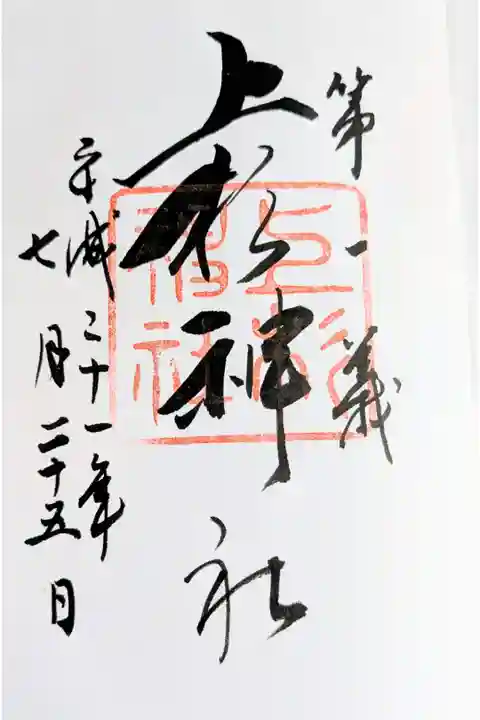 第一義
上杉神社
平成二十一年
七月二十五日
上杉
神社